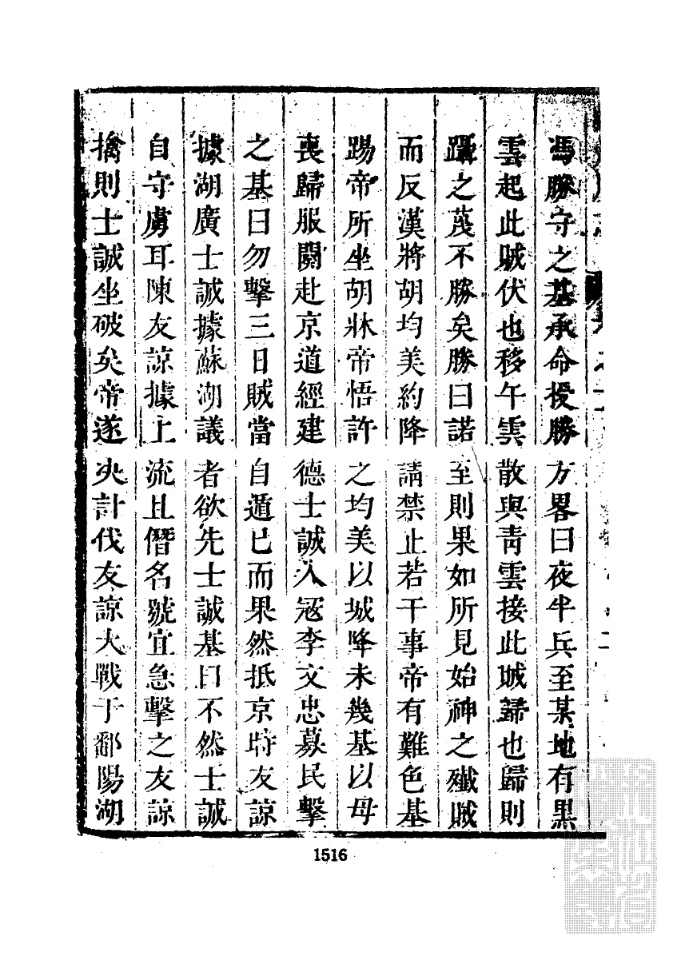 馮勝守之基承命授勝方畧曰夜半兵至某地有黑
雲起此賊伏也移午雲散與青雲接此賊歸也歸則
躡之蔑不勝矣勝曰諾至則果如所見始神之殲賊
而反漢將胡均美約降請禁止若干事帝有難色基
踢帝所坐胡牀帝悟許之均美以城降未幾基以母
喪歸服闋赴京道經建德士誠入寇李文忠募民擊
之基曰勿擊三日賊當自遁已而果然抵京時友諒
據湖廣士誠據蘇湖議者欲先士誠基曰不然士誠
自守虜耳陳友諒據上流且僭名號宜急擊之友諒
擒則士誠坐破矣帝遂决計伐友諒大戰于鄱陽湖
1516